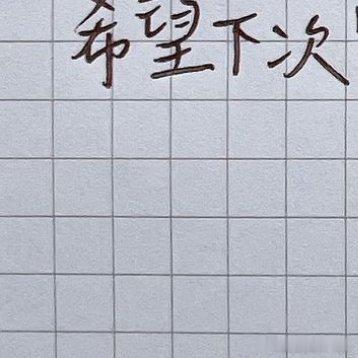 希望下次